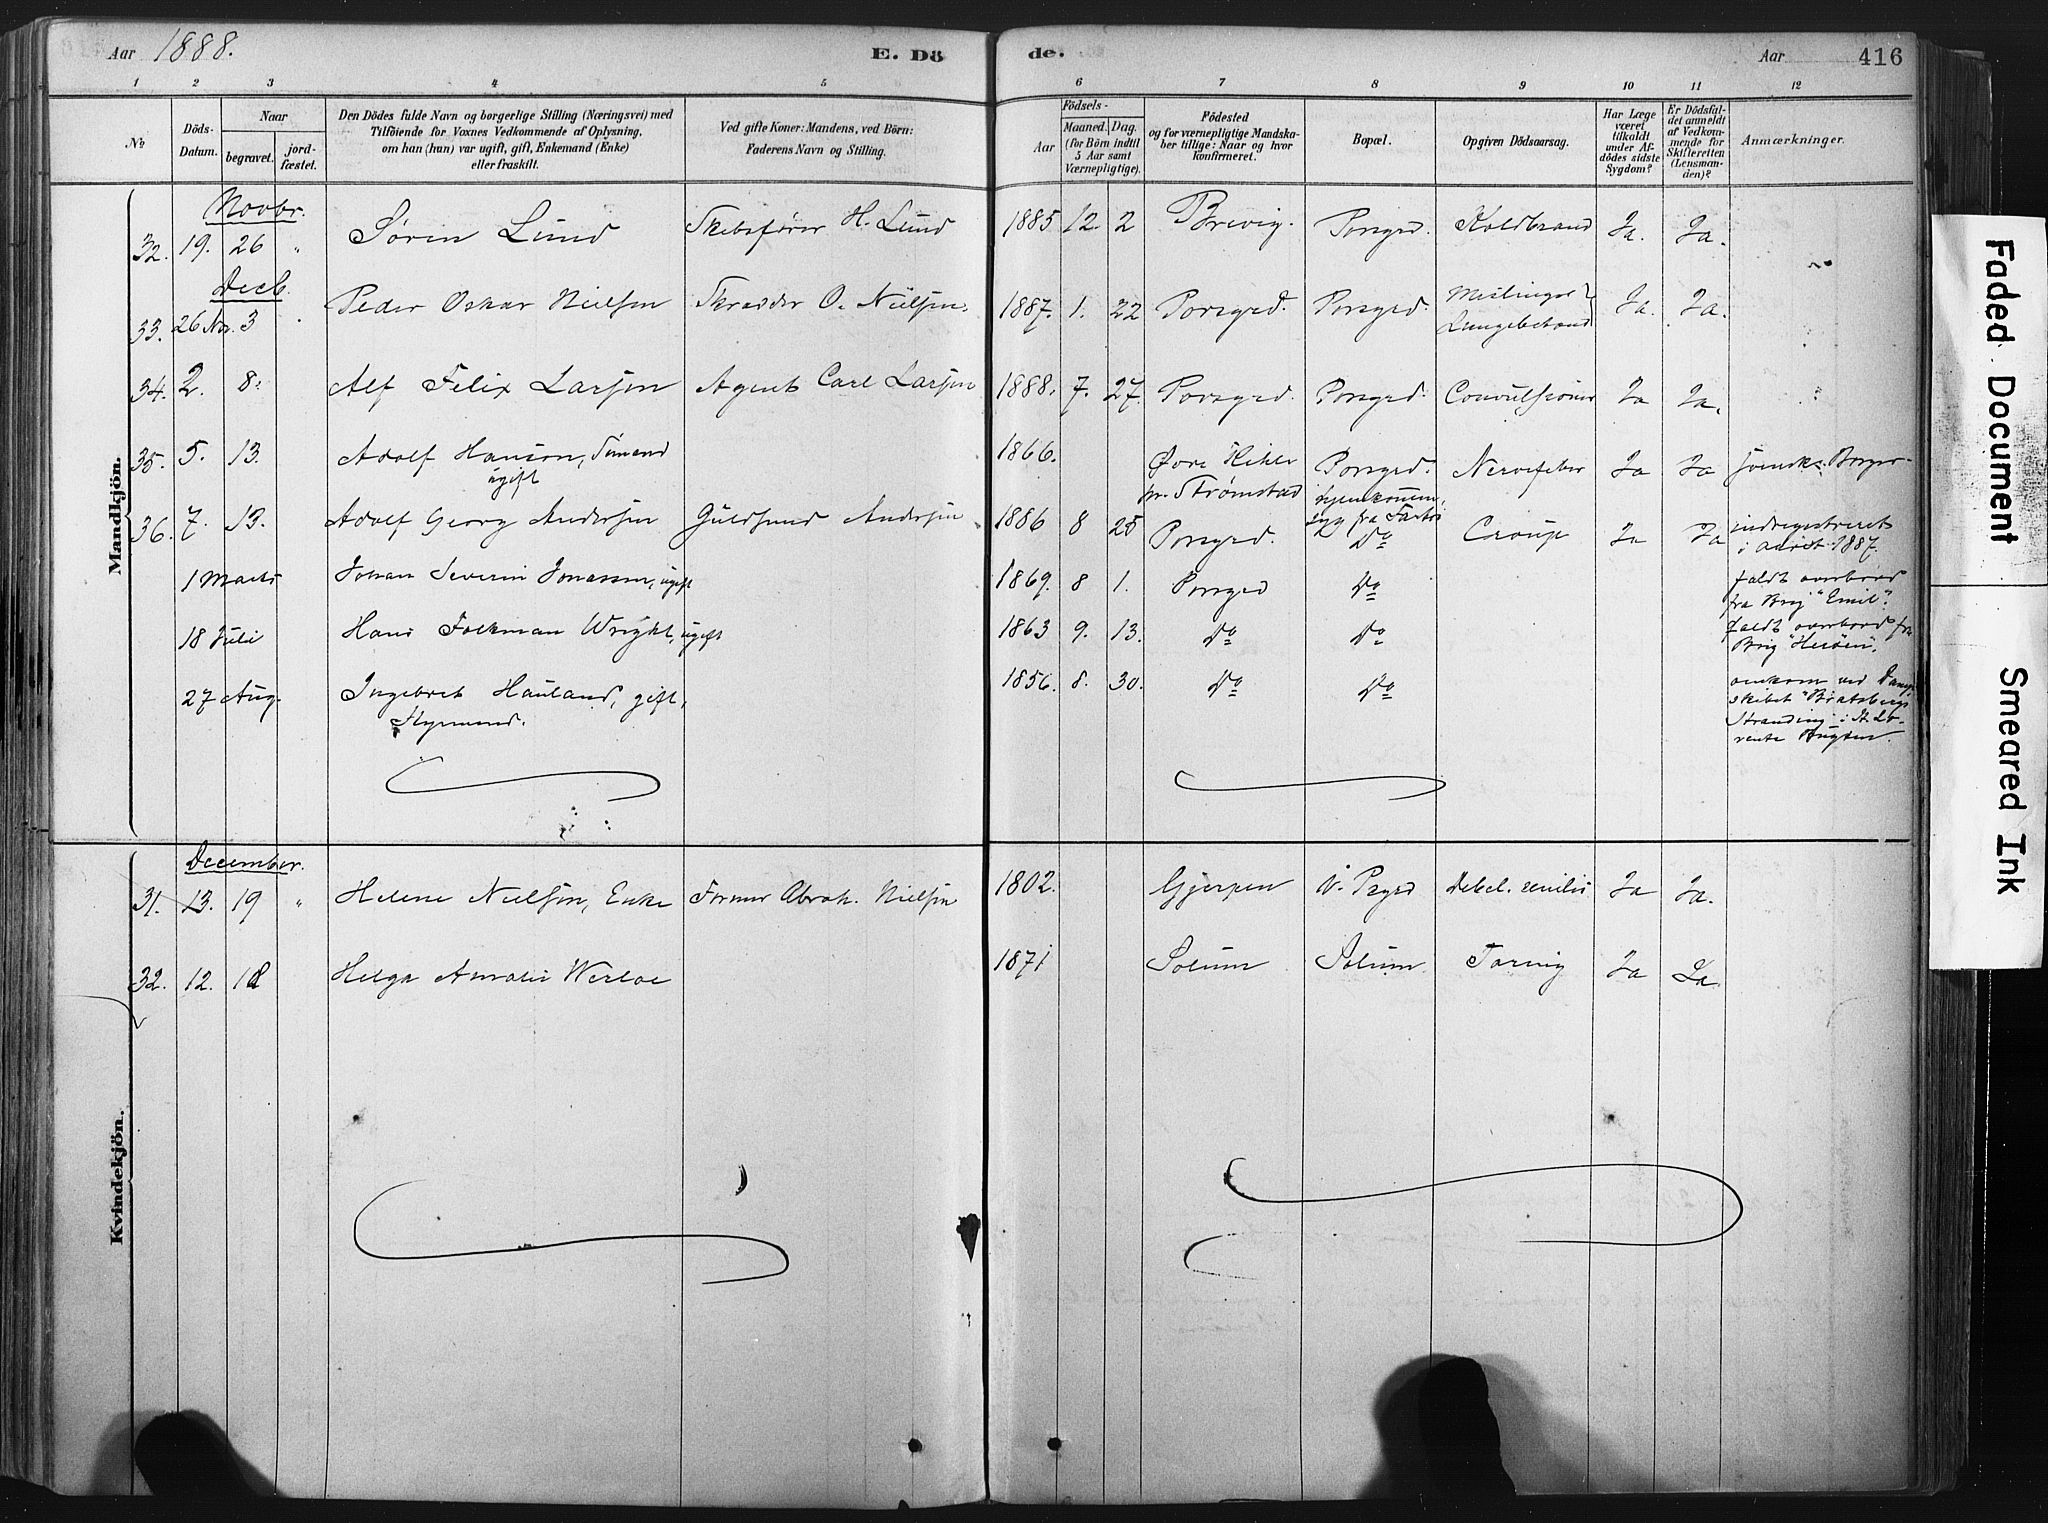 Aar 1888. E. Dö de. Aar 416
1 2 3 4 5 6 7 8 9 10 11 12
No
Döds-Datum.
Naar
begravet.
jord-fæstet.
Den Dödes fulde Navn og borgerlige Stilling (Næringsvei) med
Tilföiende for Voxnes Vedkommende af Oplysning,
om han (hun) var ugift, gift, Enkemand (Enke)
eller fraskilt.
Ved gifte Koner: Mandens, ved Börn:
Faderens Navn og Stilling.
Födsels-
Aar
Maaned. Dag.
(for Börn indtil
5 Aar samt
Værnepligtige).
Födested
og for værnepligtige Mandska-
ber tillige: Naar og hvor
konfirmeret.
Bopæl.
Opgiven Dödsaarsag.
Har Læge
været
tilkaldt
under Af-
dödes sidste
Sygdom?
Er Dödsfal-
det anmeldt
af Vedkom-
mende for
Skifteretten
(Lensman-
den)?
Anmærkninger.
Mandkjön.
Novbr.
32. 19. 26 " Søren Lund Skibsfører H. Lund 1885 12. 2 Brevig. Porsgrd. Koldbrand Ja. Ja.
Decb.
33. 26 Nov. 3 Peder Oskar Nielsen Skrædder O. Nielsen 1887. 1. 22 Porsgrd. Porsgrd. Meslinger Lungebetænd Ja. Ja.
34. 2. 8. Alf Felix Larsen Agent Carl Larsen 1888. 7. 27. Porsgrd. Porsgrd. Convulsioner Ja Ja.
35. 5. 13. Adolf Hanson, Sømand ugift 1866. Øvre pr. Strømstad Porsgrd. hjemkommen syg fra Nervefeber Ja Ja svensk Borger
36. 7. 13. Adolf Georg Andersen Guldsmed Andersen 1886 8 25 Porsgrd. Do Croup Ja Ja indregistreret i 1887.
1 Marts Johan Severin Jonassen, ugift 1869. 8 1. Porsgrd Do faldt overbord
fra Brig "Emil".
18 Juli Hans Folkman Wright, ugift 1863 9. 13. Do Do faldt overbord fra
Brig "Herøen".
27 Aug. Ingebret Hauland, gift, 1856. 8. 30. Do Do omkom ved Damp-
Styrmand. skibet "Bratsberg
Stranding i St. Lo-
rents Bugten.
Kvindekjön.
December.
31. 13. 19 " Helene Nielsen, Enke Former Abrah. Nielsen 1802. Gjerpen V. Pgrd Debil. senilis Ja Ja.
32. 12. 18 Helga Amalie Werloe 1871 Solum Solum Tæring Ja Ja
Faded Document
Smeared Ink